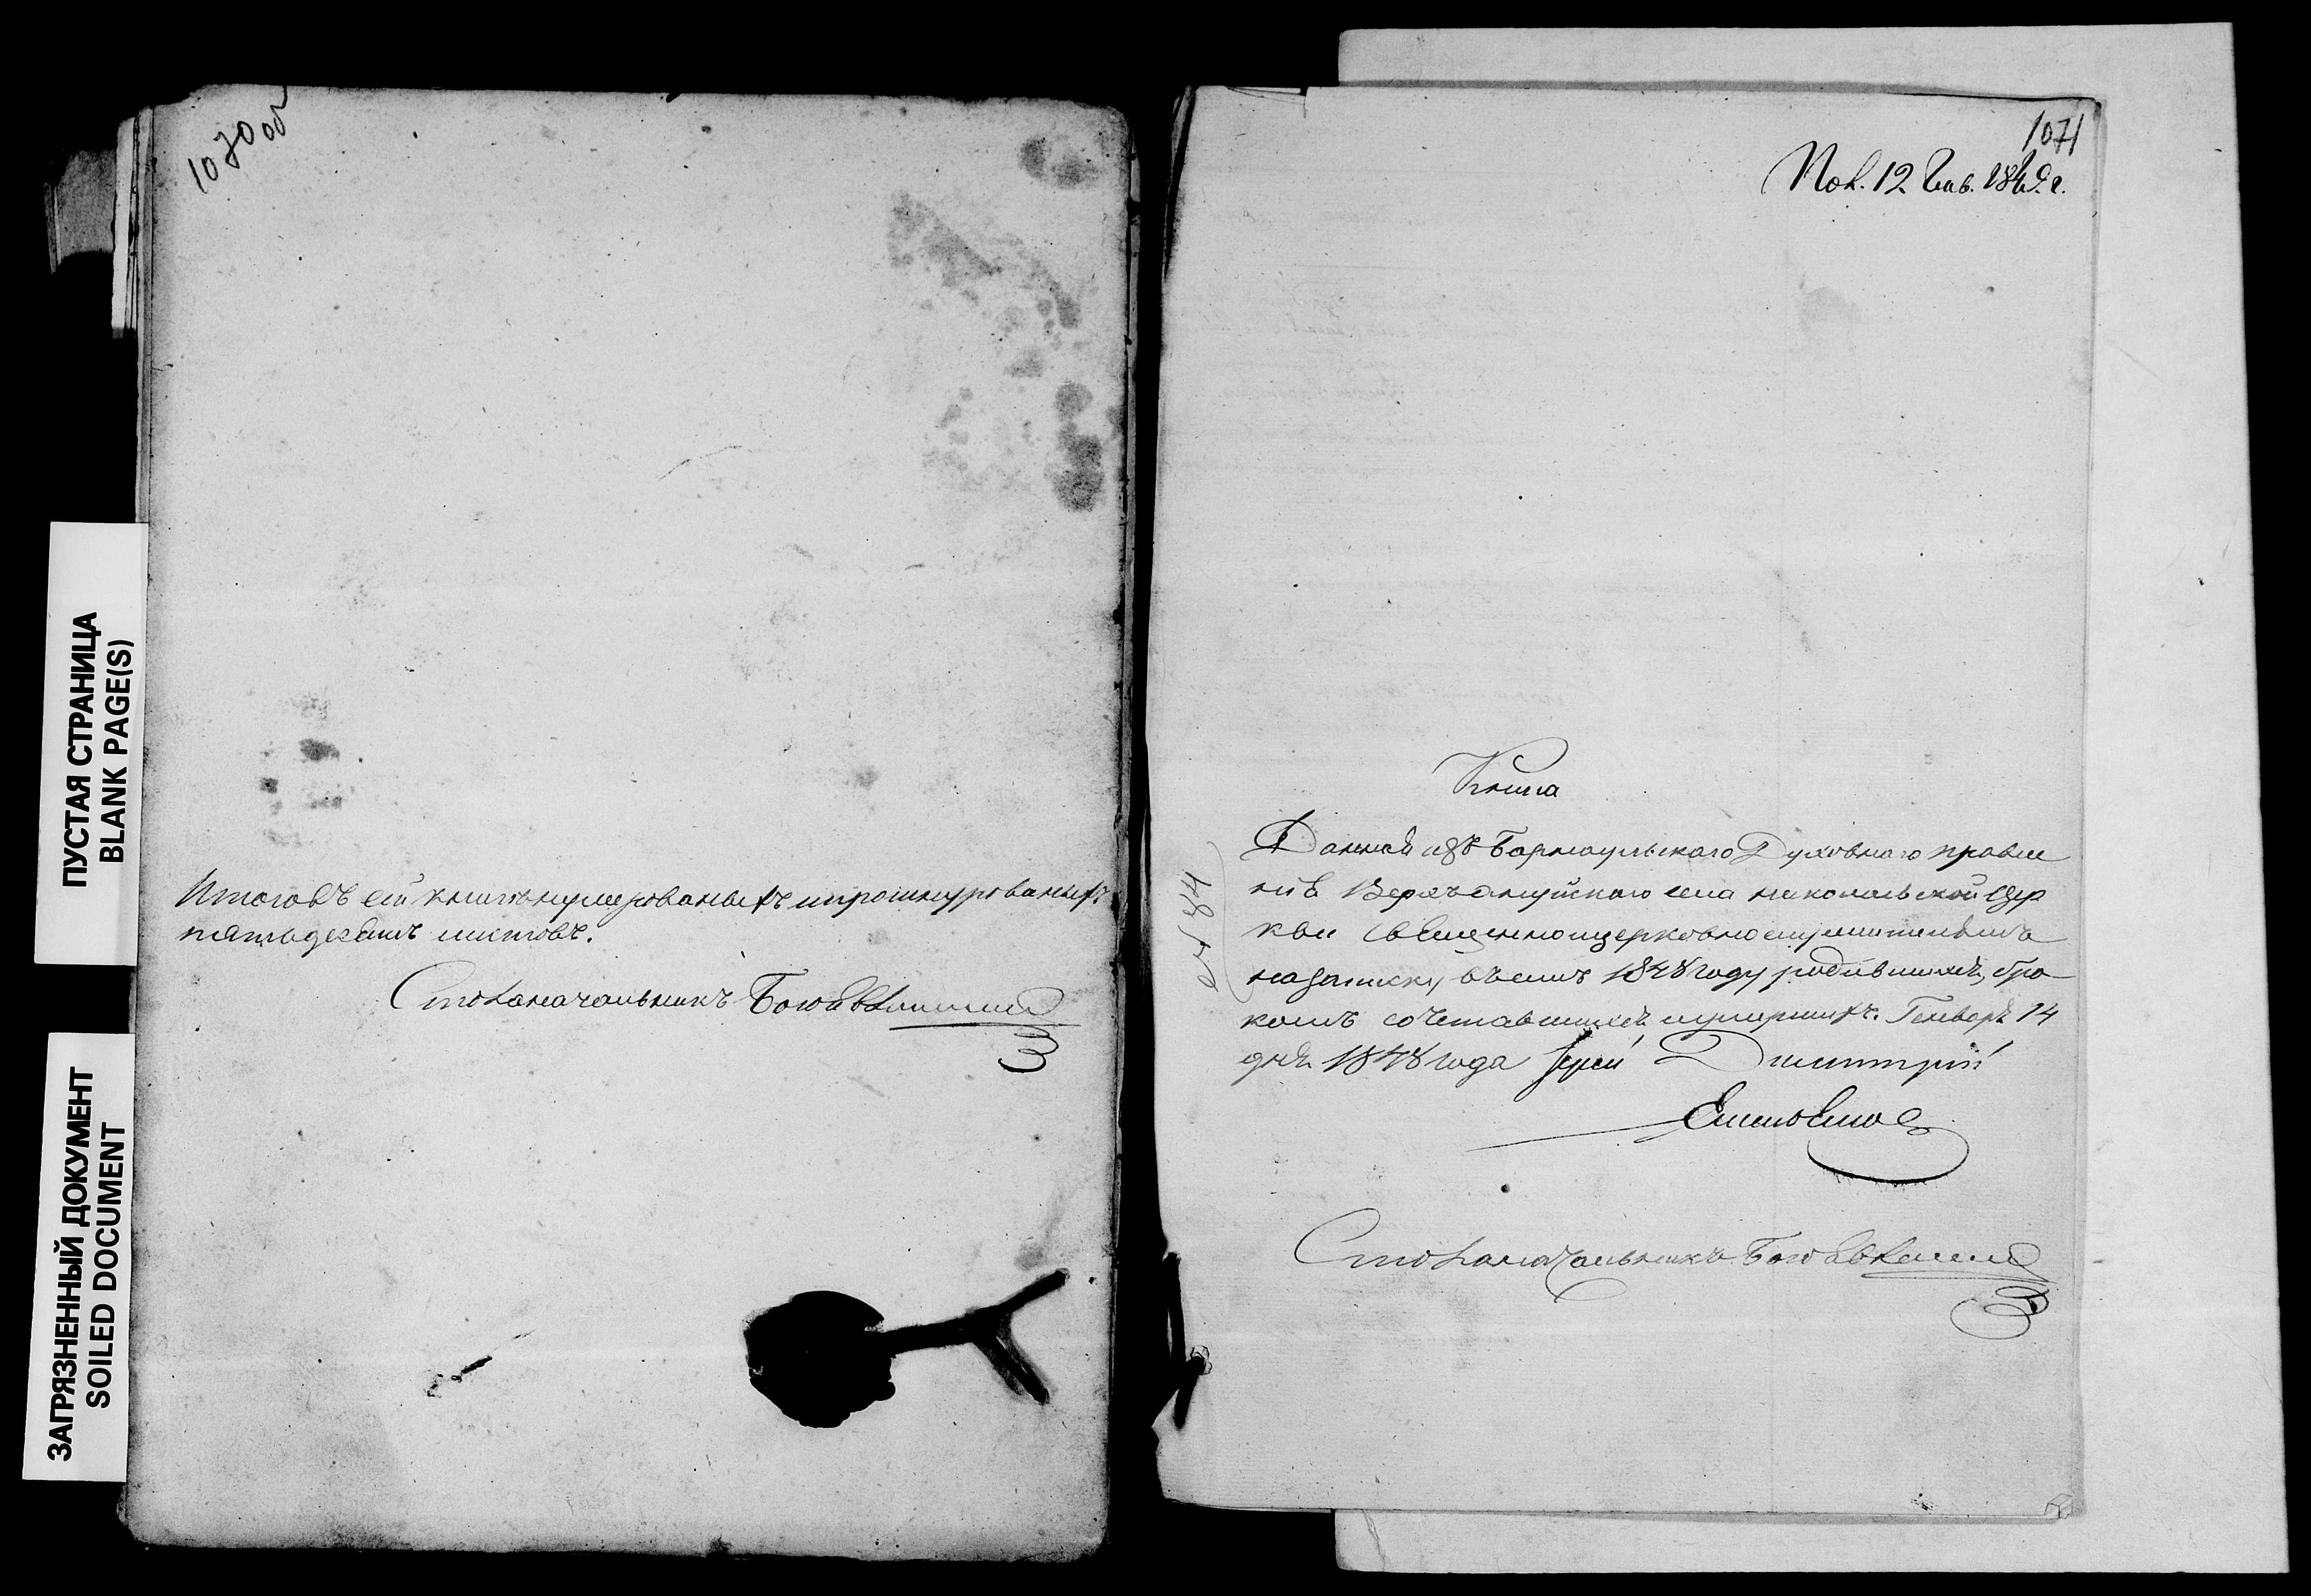 1070 об
ПУСТАЯ СТРАНИЦА
BLANK PAGE(S)
ЗАГРЯЗНЕННЫЙ ДОКУМЕНТ
SOILED DOCUMENT
Итого въ сей книгѣ нумерованыхъ ипрошнурованыхъ
пятьдесятъ листовъ.
Столоначальникъ Боговъ
1071
Пол. 12 Генв. 1849. г.
Книга
Данная изъ Барнаульскаго Духовнаго правле
нія Верхъ ануйскаго села николаьской Цер
кви Священноцерковнослужителямъ
назаписку въ 1848 году родившихся, бра
комъ сочетавшихся иумершихъ. Генваря 14
дня 1848 года Іерей Димитрій
Столоначальникъ